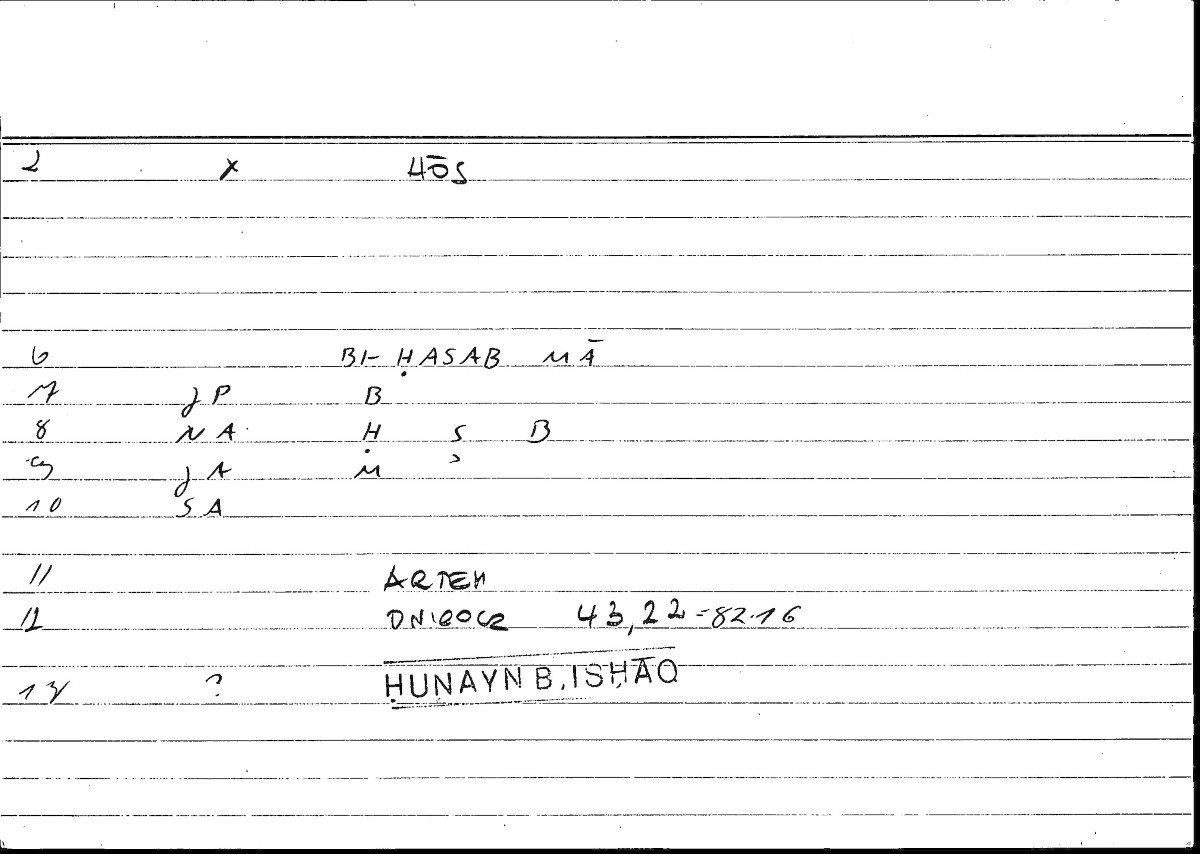 2 x HŌS
6 BI- ḤASAB MĀ
7 JP B
8 NA Ḥ S B
9 JA M ʾ
10 SA
11 ARTEM
12 ONIROCR 43,22 = 82.16
13 ? ḤUNAYN B. ISḤĀQ